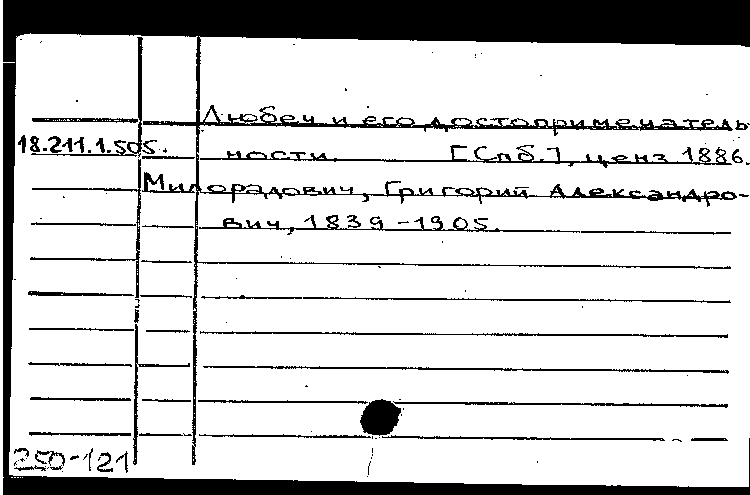 Любеч и его достопримечатель
18.211.1.505. ности. [Спб.], ценз 1886.
Милорадович, Григорий Александро-
вич, 1839-1905.
250-121